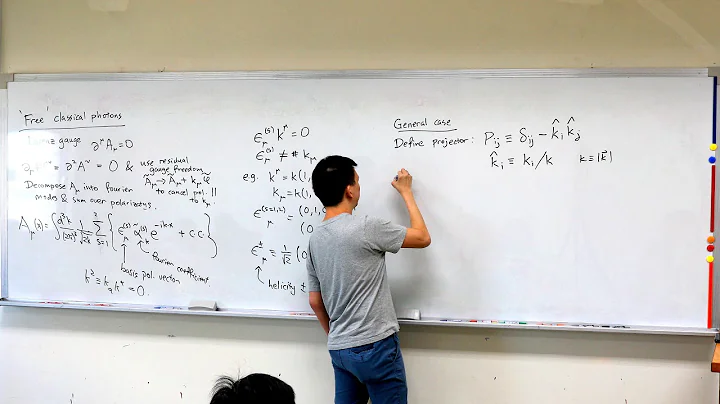 'Free' classical photons
gauge ∂^μ A_μ = 0
= ∂² A^ν = 0 & use residual gauge freedom
Ã_μ → Ã_μ + k_μ φ̃
to cancel pol. || to k_μ
Decompose A_μ into fourier
modes & sum over polarizatns
A_μ(x) = ∫ d³k/(2π)³ 1/√2k Σ_{s=1}^{2} { ε_μ^(s) α̃_k^(s) e^{-ik·x} + c.c. }
Fourier coefficient
basis pol. vectors
k² ≡ k_μ k^μ = 0.
ε_μ^(s) k^μ = 0
ε_μ^(s) ≠ # k_μ
e.g. k^μ = k(1,
k_μ = k(1,
ε_μ^(s=1,2) = (0,1,
(0
ε_μ^± ≡ 1/√2 (0
helicity ±
General case
Define projector: P_ij ≡ δ_ij − k̂_i k̂_j
k̂_i ≡ k_i/k k ≡ |k⃗|